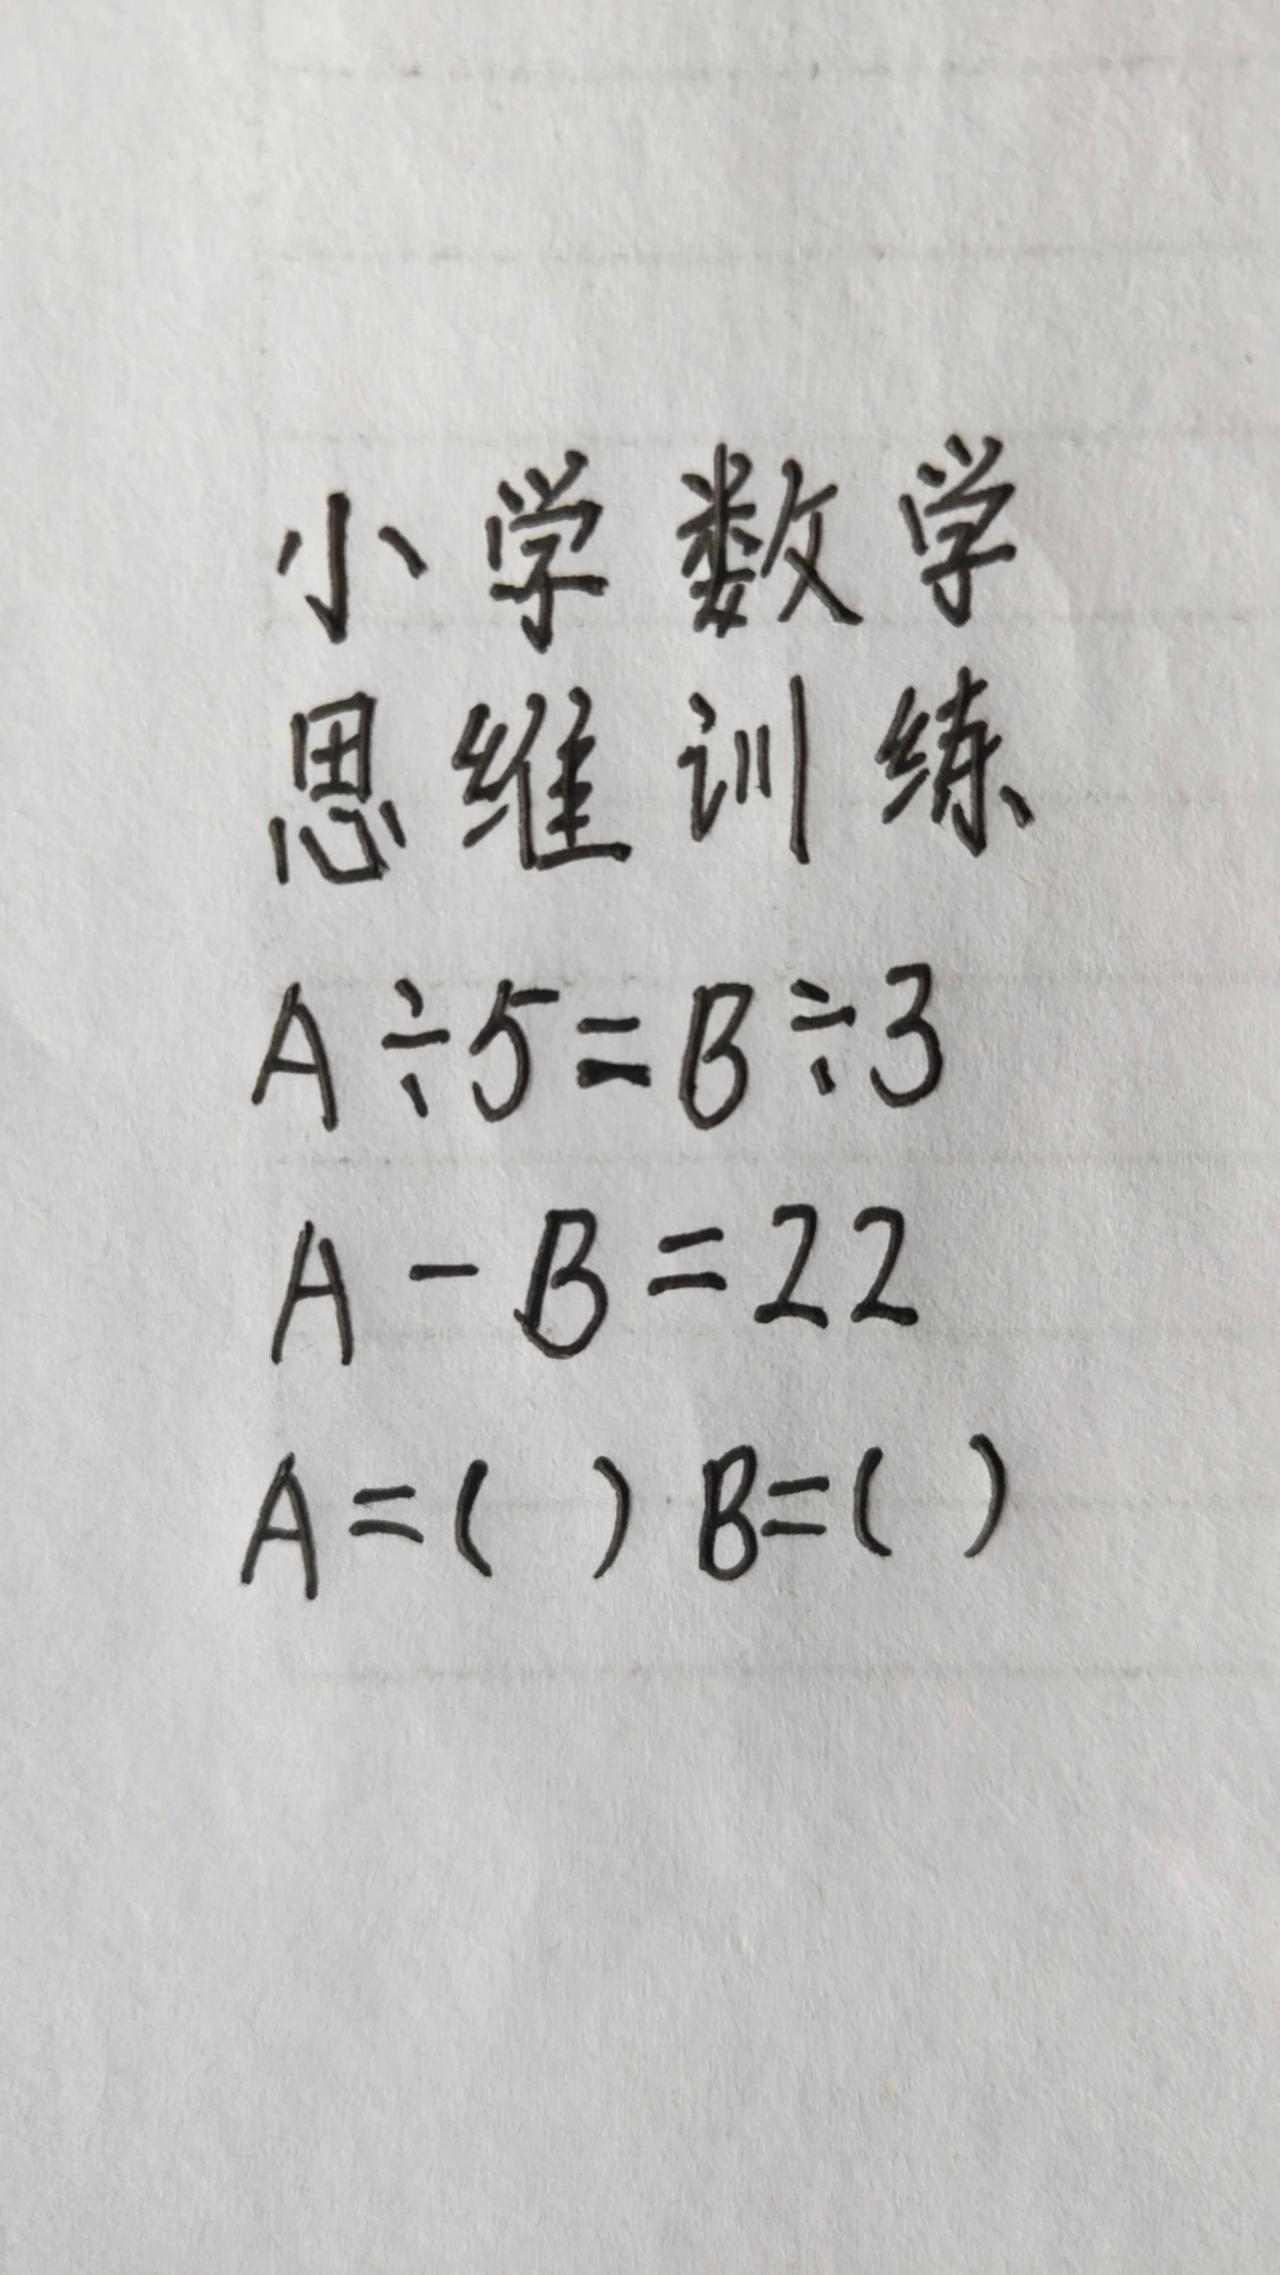 小学数学
思维训练
A÷5=B÷3
A-B=22
A=( ) B=( )